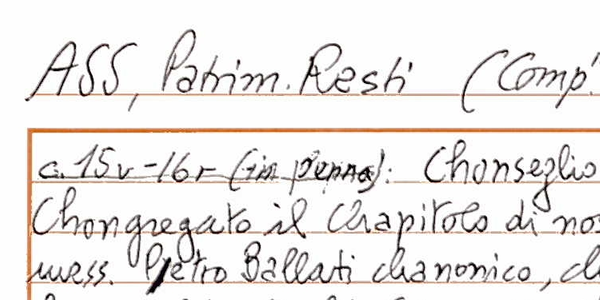 ASS, Patrim. Resti (Comp.
c. 15v-16r (in penna): Chonseglio
Chongregato il Chapitolo di nos
mess. Pietro Ballati chanonico, ch